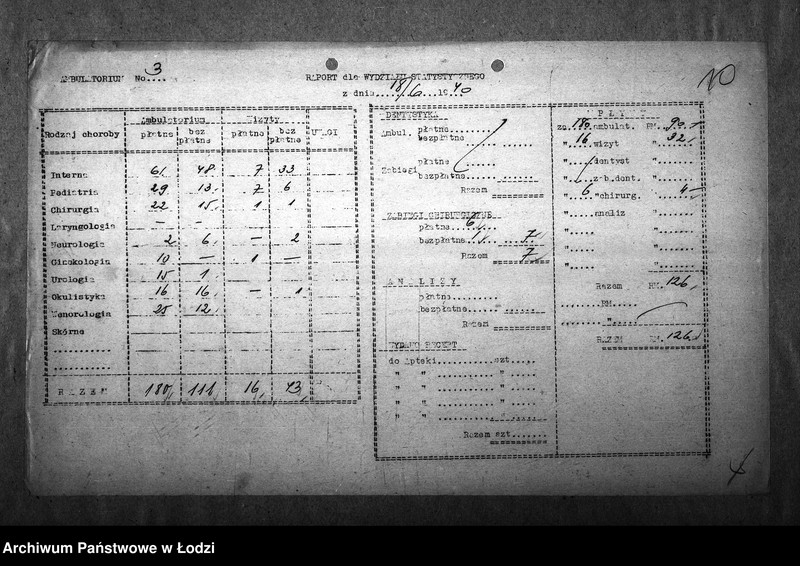 AMBULATORIUM No 3
RAPORT dla WYDZIAŁU STATYSTYCZNEGO
z dnia 18/6 1940
10
Rodzaj choroby Ambulatorium Wizyty UWAGI
płatne bez płatne płatne bez płatne
Interna 61 48 7 33
Pediatria 29 13 7 6
Chirurgia 22 15 1 1
Laryngologia — —
Neurologia 2 6 — 2
Ginekologia 10 — 1 —
Urologia 15 1
Okulistyka 16 16 — 1
Wenorologia 25 12
Skórne
RAZEM 180 111 16 43
DENTYSTYKA
Ambul. płatne
bezpłatne
Zabiegi płatne
bezpłatne
Razem
ZABIEGI CHIRURGICZNE
płatne 6
bezpłatne 1 7
Razem 7
ANALIZY
płatne
bezpłatne
Razem
WYDANO RECEPT
do Apteki szt
" " "
" " "
" " "
" " "
Razem szt
za 180 ambulat. RM. 90
" 16 wizyt " 32
" dentyst "
" zab.dent. "
" 6 "chirurg. " 4
" analiz "
" "
" "
" "
Razem RM. 126
RM.
"
RAZEM RM. 126
Archiwum Państwowe w Łodzi